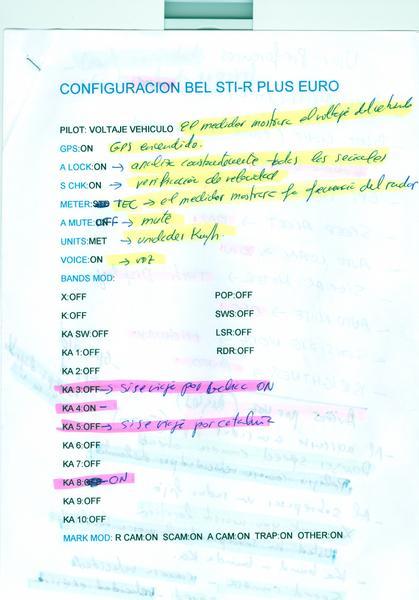 CONFIGURACION BEL STI-R PLUS EURO
PILOT: VOLTAJE VEHICULO El medidor mostrara el voltaje del vehiculo
GPS:ON GPS encendido.
A LOCK:ON → analiza constantemente todas las señales
S CHK:ON → verificación de velocidad
METER: TEC → el medidor mostrara la frecuencia del radar
A MUTE:OFF → mute
UNITS:MET → unidades Km/h
VOICE:ON → voz
BANDS MOD:
X:OFF POP:OFF
K:OFF SWS:OFF
KA SW:OFF LSR:OFF
KA 1:OFF RDR:OFF
KA 2:OFF
KA 3:OFF → si se viaja por ON
KA 4:ON –
KA 5:OFF → si se viaja por cataluña
KA 6:OFF
KA 7:OFF
KA 8: ON
KA 9:OFF
KA 10:OFF
MARK MOD: R CAM:ON SCAM:ON A CAM:ON TRAP:ON OTHER:ON